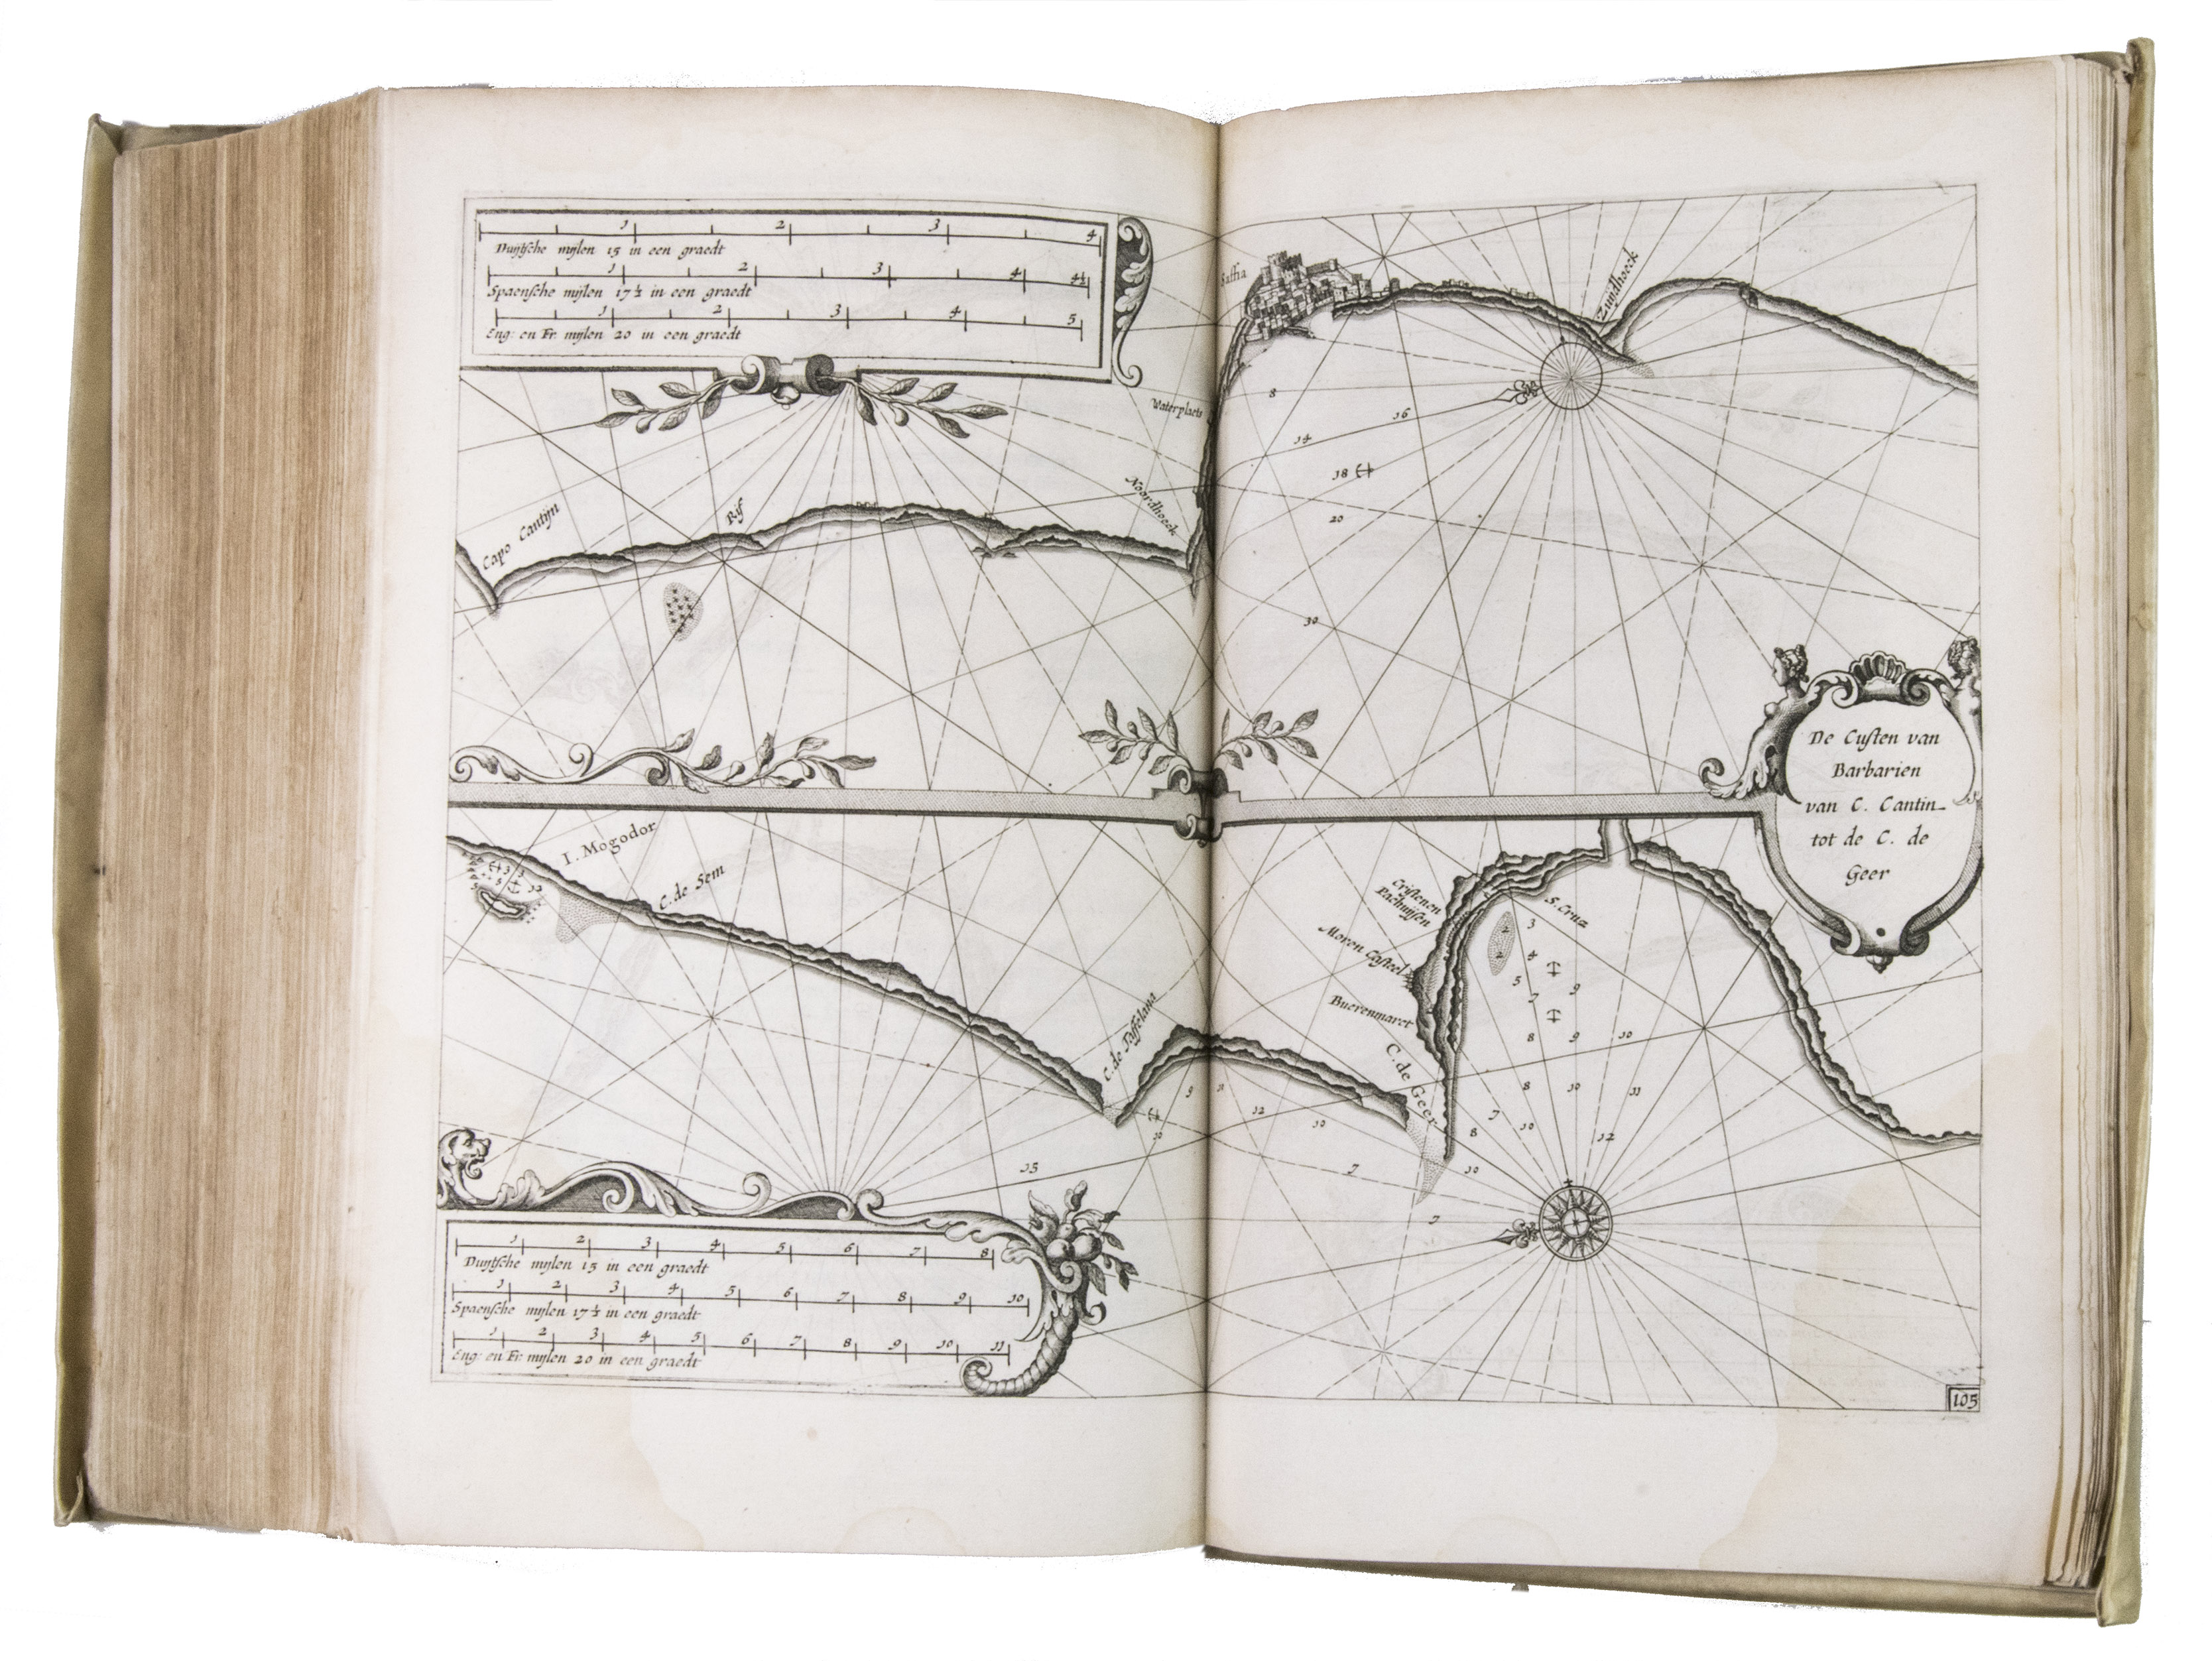 1 2 3 4
Duijtsche mijlen 15 in een graedt
1 2 3 4 4½
Spaensche mijlen 17½ in een graedt
1 2 3 4 5
Eng: en Fr. mijlen 20 in een graedt
Saffia
Zuijdhoeck
Waterplaets
Noordhoeck
Capo Cantijn
Rif
8
16
14
18
20
30
De Custen van
Barbarien
van C. Cantin
tot de C. de
Geer
I. Mogodor
C. de Sem
C. de Taffelana
Cristenen
Pachuijsen
Moren Casteel
Buerenmarct
C. de Geer
S. Cruz
2
2
3
4
5
9
7
8 9 10
8 10 11
7
10
8
12
10
9
11
12
10
10
15
7
7
1 2 3 4 5 6 7 8
Duijtsche mijlen 15 in een graedt
1 2 3 4 5 6 7 8 9 10
Spaensche mijlen 17½ in een graedt
1 2 3 4 5 6 7 8 9 10 11
Eng: en Fr: mijlen 20 in een graedt
105